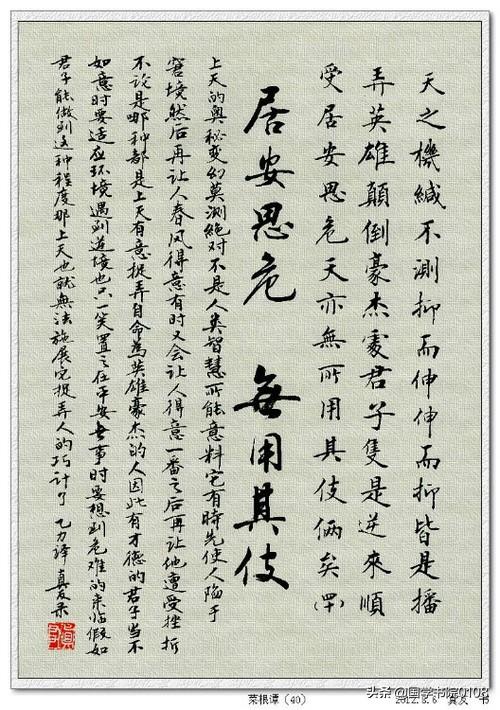 天之機緘不測抑而伸伸而抑皆是播
弄英雄顛倒豪杰處君子隻是逆來順
受居安思危天亦無所用其伎倆矣
居安思危 無用其伎
上天的奥秘变幻莫测絕对不是人类智慧所能意料它有時先使人陷于
窘境然后再让人春风得意有时又会让人得意一番之后再让他遭受挫折
不论是哪种都是上天有意捉弄自命為英雄豪杰的人因此有才德的君子当不
如意时要适应环境遇到逆境也只一笑置之在平安無事时要想到危难的来临假如
君子能做到这种程度那上天也就無法施展它捉弄人的巧计了 乙力译 真友录
菜根谭（40）
2012.3.6 真友 书
头条@国学书院0108